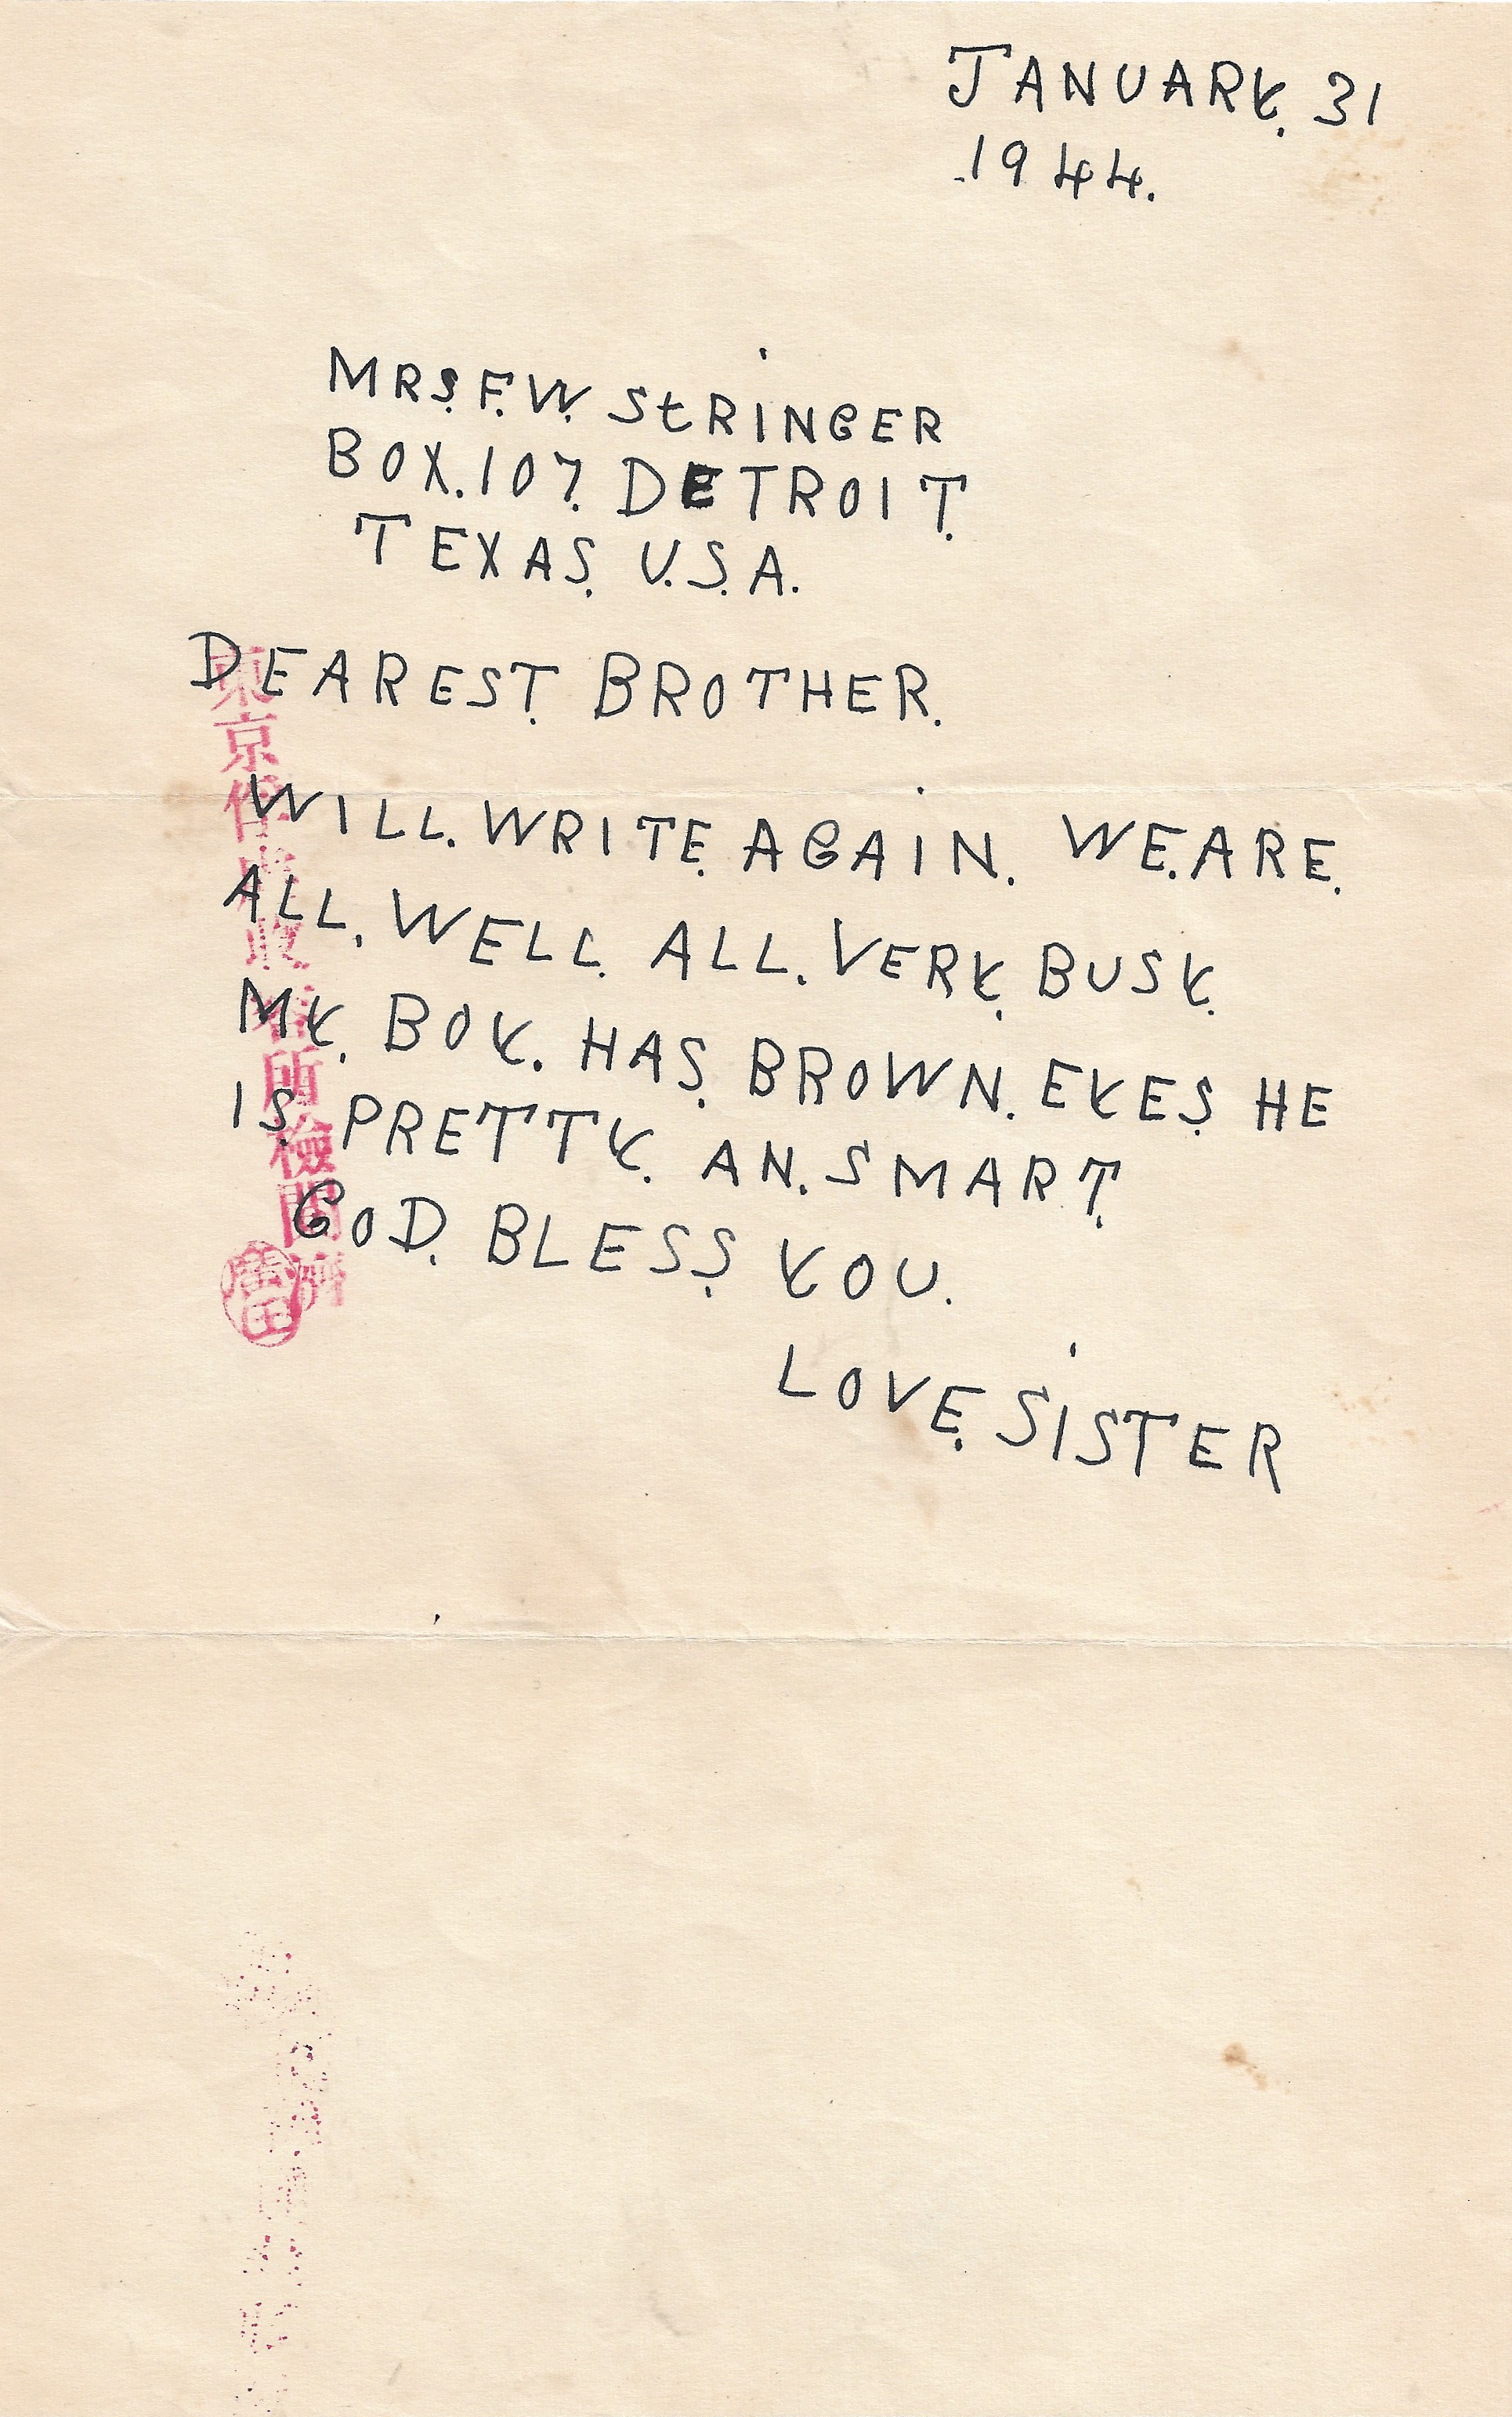 JANUARY. 31
1944.
MRS. F.W. StRINGER
BOX. 107. DETROIT.
TEXAS. U.S.A.
DEAREST. BROTHER.
WILL. WRITE. AGAIN. WE. ARE.
ALL. WELL. ALL. VERY. BUSY.
MY. BOY. HAS. BROWN. EYES. HE
IS. PRETTY. AN. SMART.
GOD. BLESS. YOU.
LOVE. SISTER
東京俘虜収容所檢閲濟